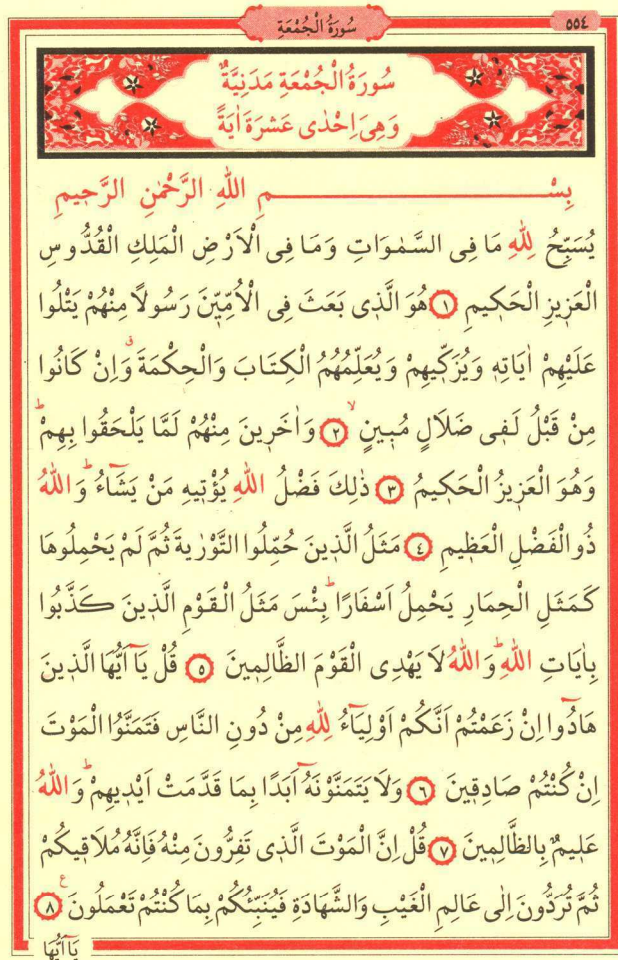 سُورَةُ الْجُمْعَةِ
٥٥٤
سُورَةُ الْجُمْعَةِ مَدَنِيَّةٌ
وَهِىَ اِحْدٰى عَشْرَةَ اٰيَةً
بِسْمِ اللهِ الرَّحْمٰنِ الرَّحٖيمِ
يُسَبِّحُ لِلّٰهِ مَا فِى السَّمٰوَاتِ وَمَا فِى الْاَرْضِ الْمَلِكِ الْقُدُّوسِ
الْعَزٖيزِ الْحَكٖيمِ ١ هُوَ الَّذٖى بَعَثَ فِى الْاُمِّيّٖنَ رَسُولًا مِنْهُمْ يَتْلُوا
عَلَيْهِمْ اٰيَاتِهٖ وَيُزَكّٖيهِمْ وَيُعَلِّمُهُمُ الْكِتَابَ وَالْحِكْمَةَ ۗ وَاِنْ كَانُوا
مِنْ قَبْلُ لَفٖى ضَلَالٍ مُبٖينٍ ۙ ٢ وَاٰخَرٖينَ مِنْهُمْ لَمَّا يَلْحَقُوا بِهِمْ ؕ
وَهُوَ الْعَزٖيزُ الْحَكٖيمُ ٣ ذٰلِكَ فَضْلُ اللهِ يُؤْتٖيهِ مَنْ يَشَٓاءُ ؕ وَاللهُ
ذُو الْفَضْلِ الْعَظٖيمِ ٤ مَثَلُ الَّذٖينَ حُمِّلُوا التَّوْرٰيةَ ثُمَّ لَمْ يَحْمِلُوهَا
كَمَثَلِ الْحِمَارِ يَحْمِلُ اَسْفَارًا ؕ بِئْسَ مَثَلُ الْقَوْمِ الَّذٖينَ كَذَّبُوا
بِاٰيَاتِ اللهِ ؕ وَاللهُ لَا يَهْدِى الْقَوْمَ الظَّالِمٖينَ ٥ قُلْ يَٓا اَيُّهَا الَّذٖينَ
هَادُٓوا اِنْ زَعَمْتُمْ اَنَّكُمْ اَوْلِيَٓاءُ لِلّٰهِ مِنْ دُونِ النَّاسِ فَتَمَنَّوُا الْمَوْتَ
اِنْ كُنْتُمْ صَادِقٖينَ ٦ وَلَا يَتَمَنَّوْنَهُٓ اَبَدًا بِمَا قَدَّمَتْ اَيْدٖيهِمْ ؕ وَاللهُ
عَلٖيمٌ بِالظَّالِمٖينَ ٧ قُلْ اِنَّ الْمَوْتَ الَّذٖى تَفِرُّونَ مِنْهُ فَاِنَّهُ مُلَاقٖيكُمْ
ثُمَّ تُرَدُّونَ اِلٰى عَالِمِ الْغَيْبِ وَالشَّهَادَةِ فَيُنَبِّئُكُمْ بِمَا كُنْتُمْ تَعْمَلُونَ ع ٨
يَٓا اَيُّهَا